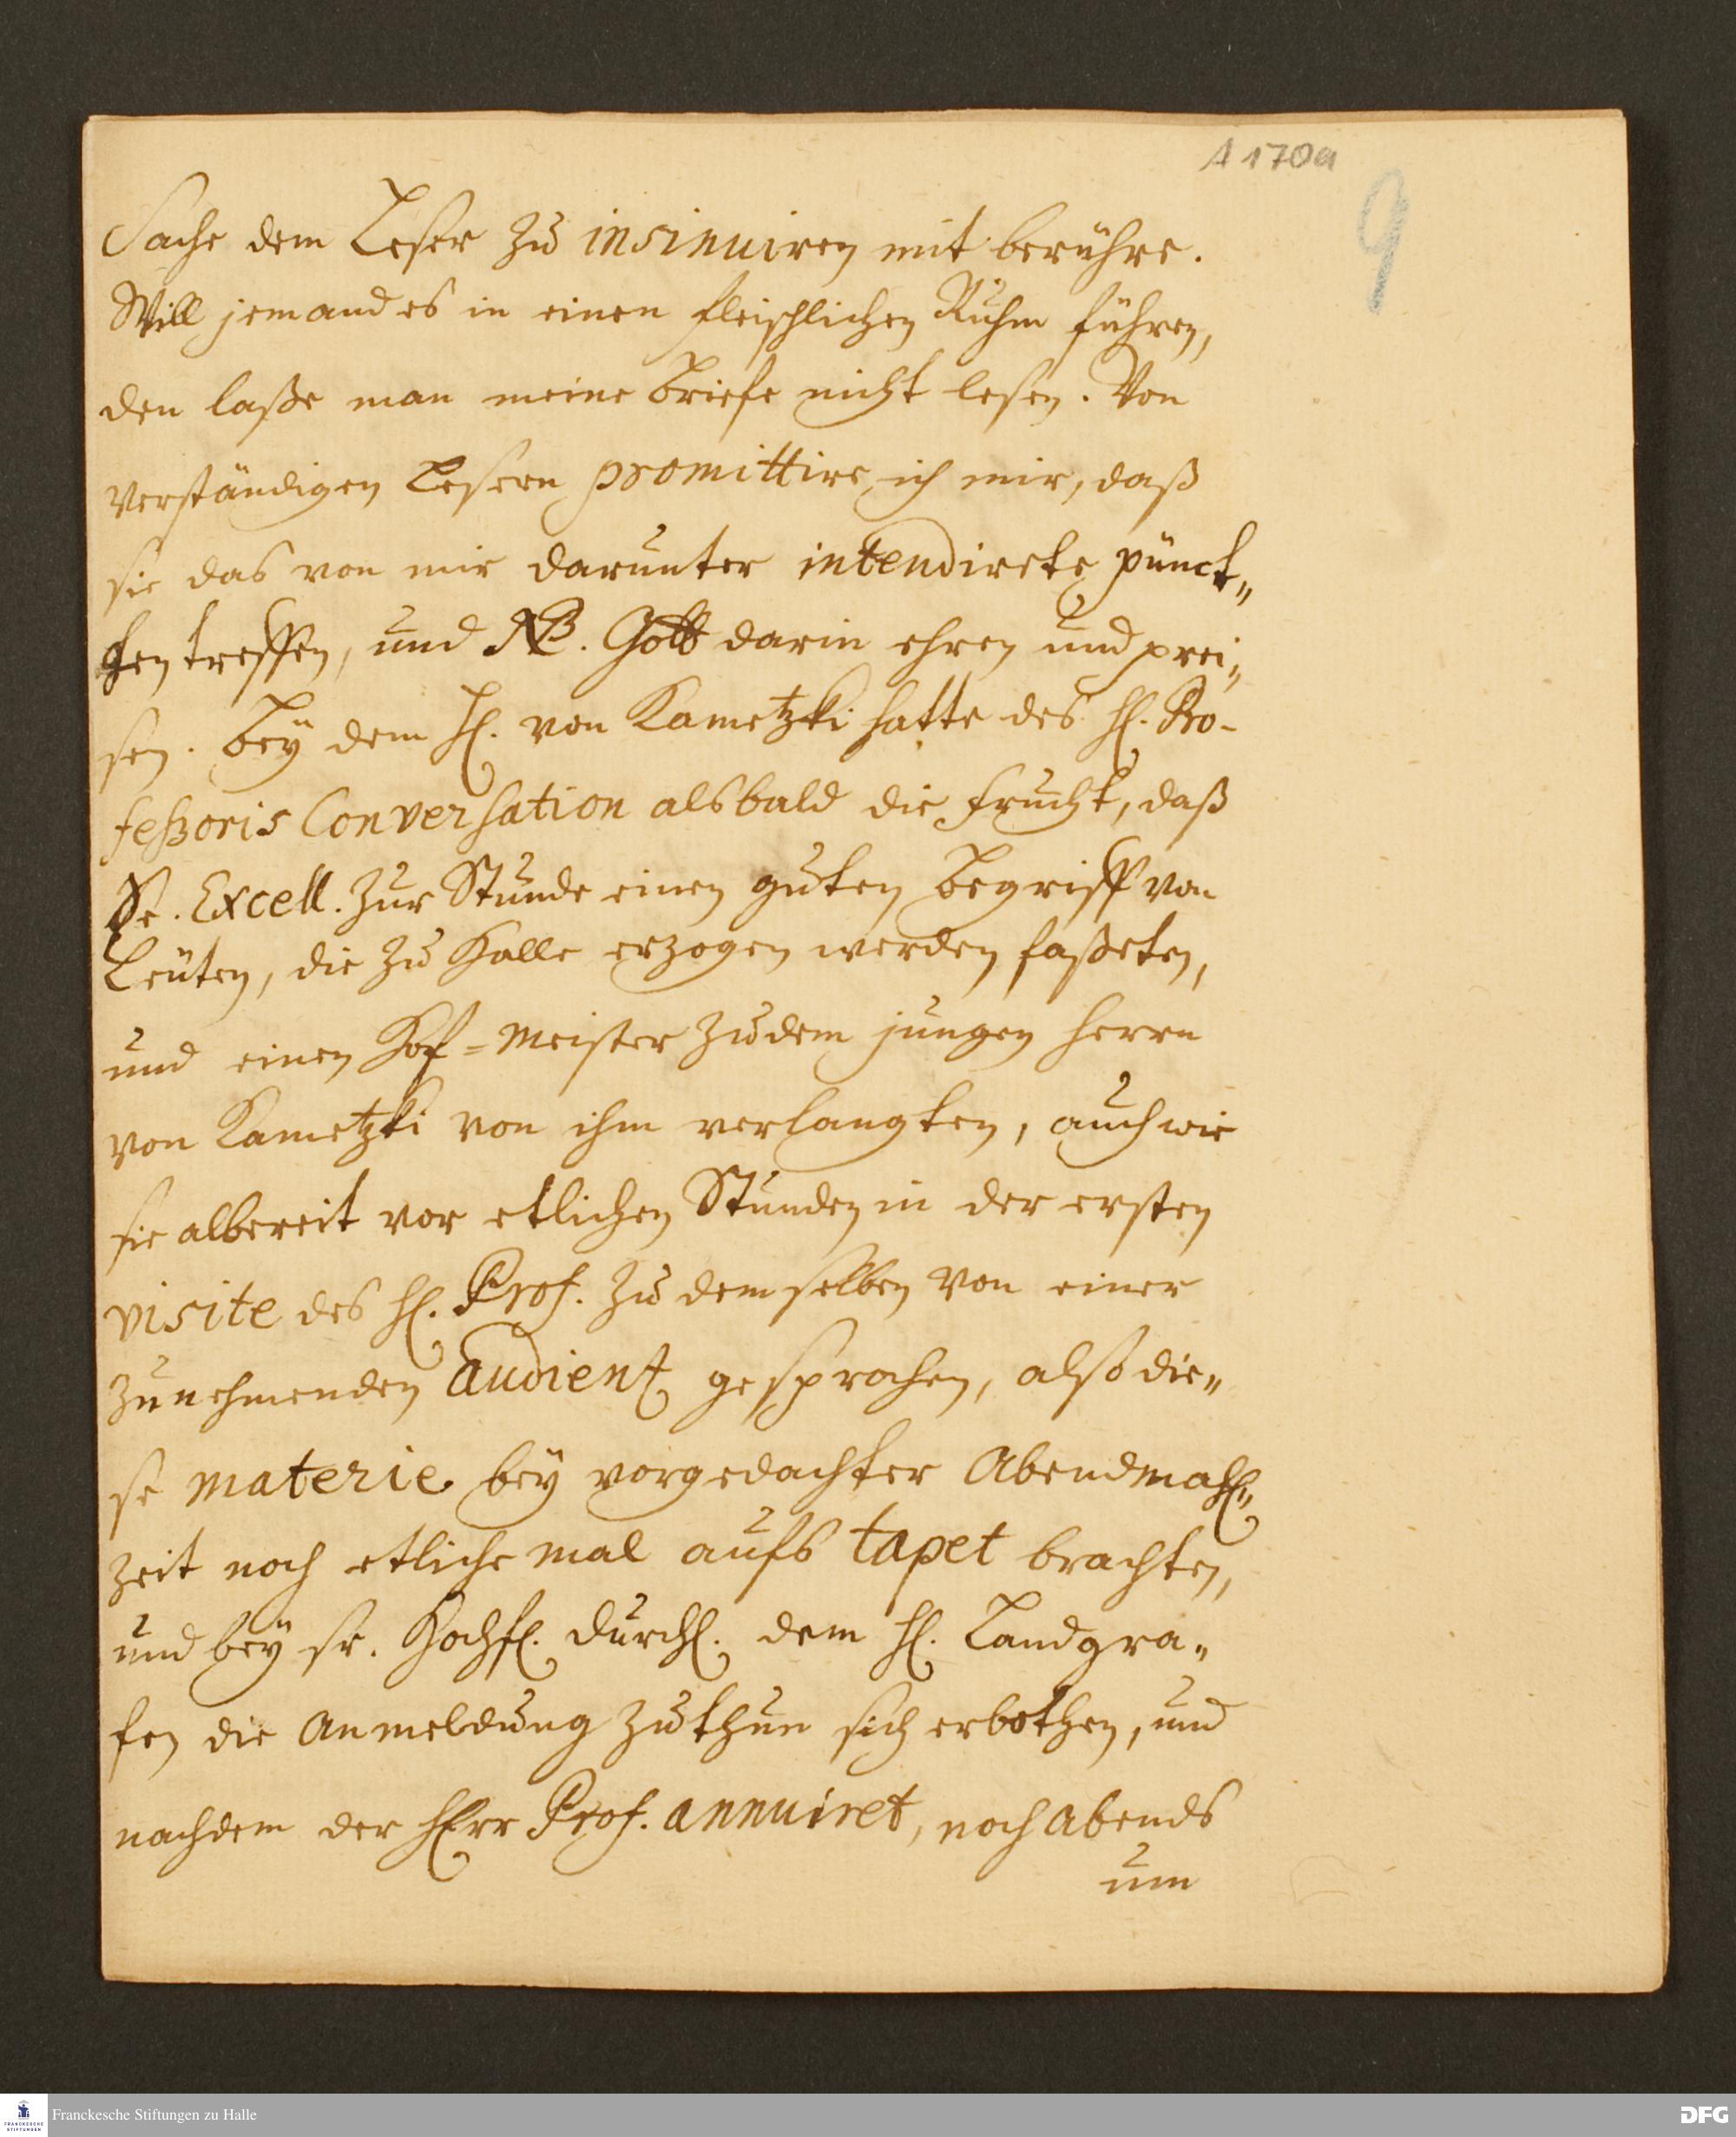 A 170a
9
Sache dem Leser zu insinuiren mit berühre.
Will jemand es in einen fleischlichen Ruhm führen,
den laße man meine Briefe nicht lesen. Von
verständigen Lesern promittire ich mir, daß
sie das von mir darunter intendirete pünct„
gen treffen, und NB. Gott darin ehren und prei„
sen. Bey dem H. von Kametzki hatte des H. Pro-
feßoris Conversation alsbald die Frucht, daß
Se. Excell. zur Stunde einen guten Begriff von
Leuten, die zu Halle erzogen werden faßeten,
und einen Hof-Meister zu dem jungen Herrn
von Kametzki von ihm verlangten, auch wie
sie albereit vor etlichen Stunden in der ersten
visite des H. Prof. zu demselben von einer
zunehmenden audienz gesprochen, also die„
se materie bey vorgedachter Abendmahl„
zeit noch etliche mal aufs tapet brachten,
und bey Sr. Hochfl. Durchl. dem H. Landgra„
fen die Anmeldung zu thun sich erbothen, und
nachdem der Herr Prof. annuiret, noch Abends
um
FRANCKESCHE STIFTUNGEN
Franckesche Stiftungen zu Halle
DFG